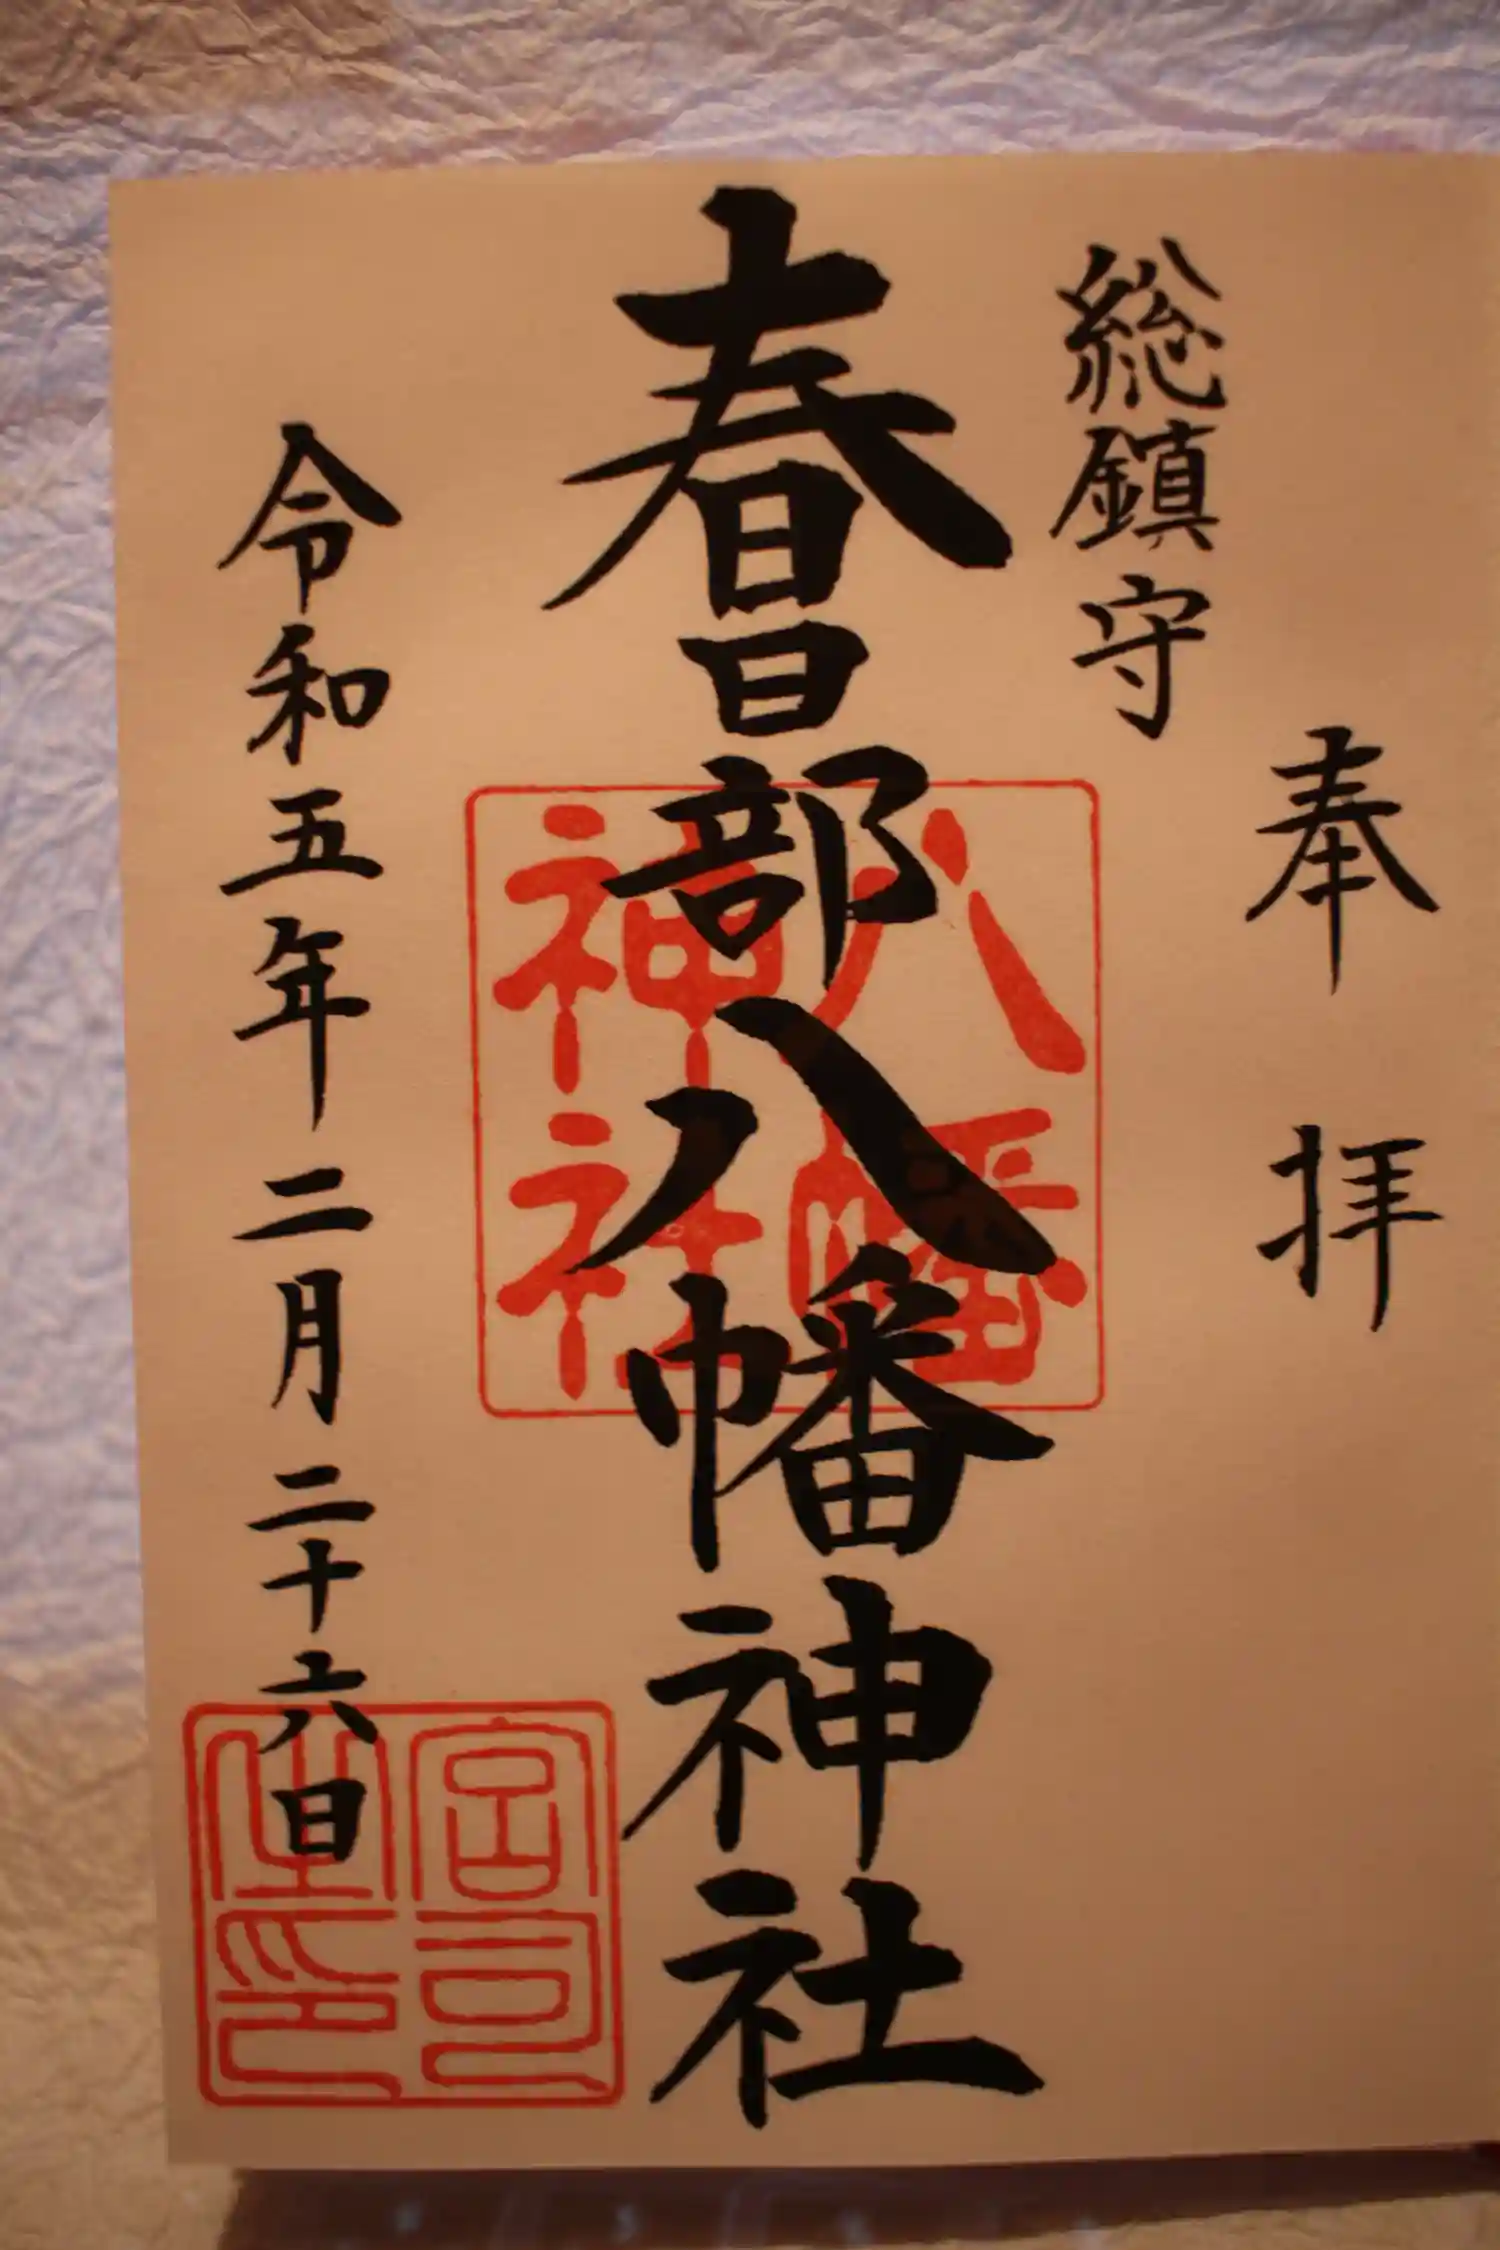 奉拝
総鎮守
春日部八幡神社
令和五年二月二十六日
八幡
神社
宮司
之印